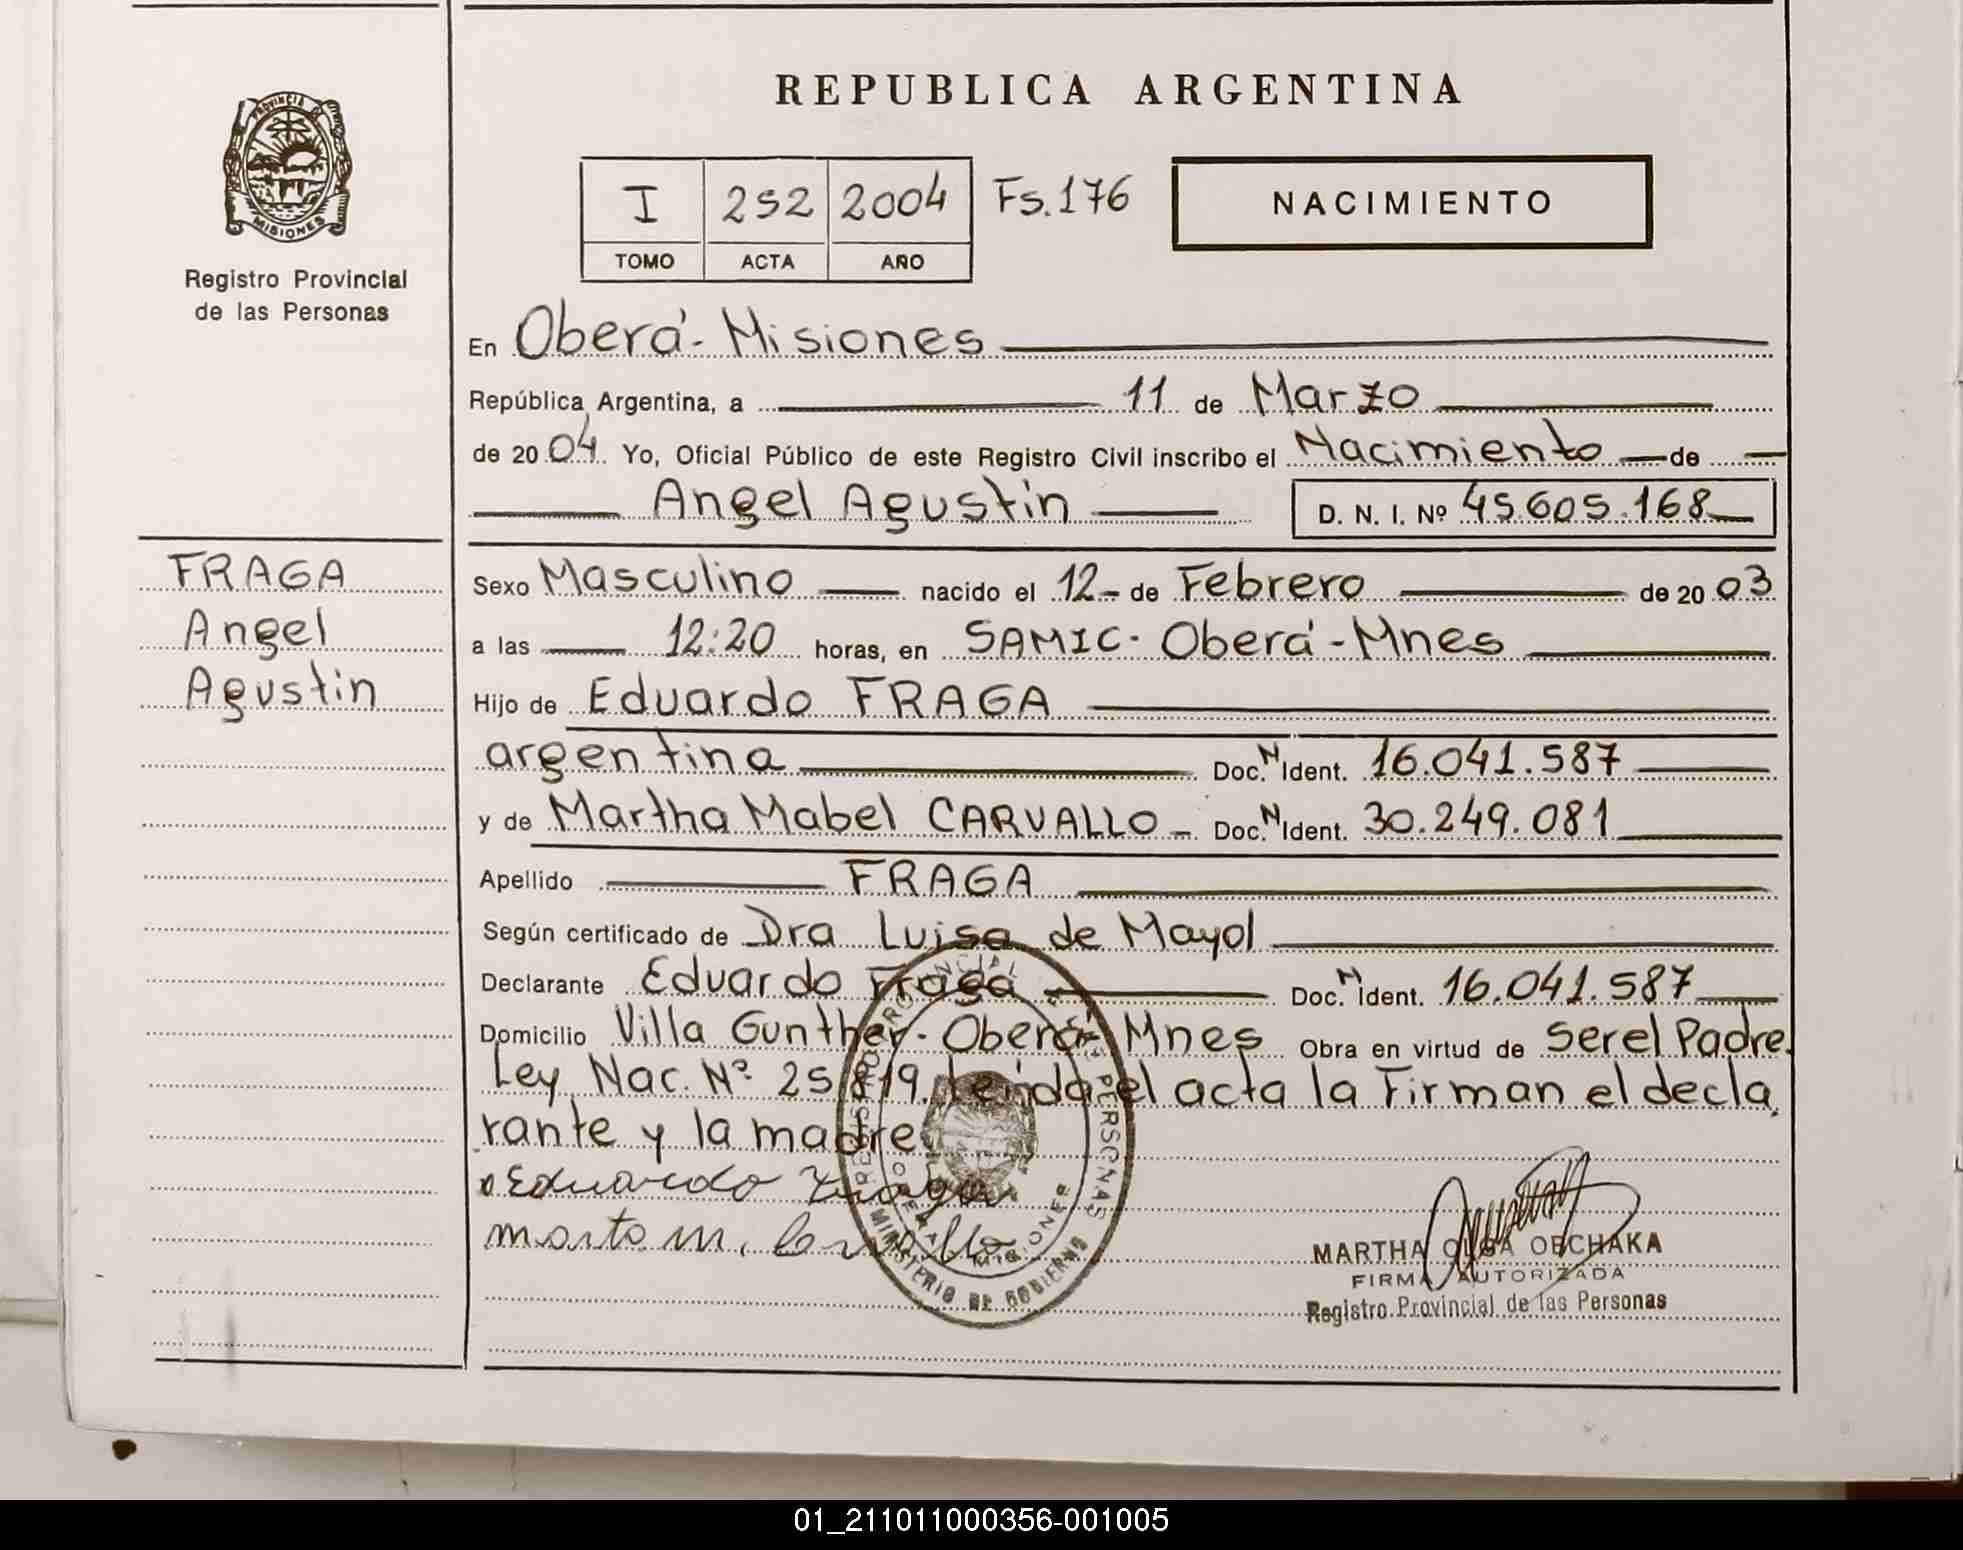 REPUBLICA ARGENTINA
PROVINCIA DE MISIONES
Registro Provincial
de las Personas
I 252 2004 Fs. 176
TOMO ACTA AÑO
NACIMIENTO
En Oberá - Misiones
República Argentina, a 11 de Marzo
de 20 04 Yo, Oficial Público de este Registro Civil inscribo el Nacimiento de
Angel Agustin D. N. I. Nº 45.605.168
FRAGA
Angel
Agustin
Sexo Masculino nacido el 12 de Febrero de 20 03
a las 12:20 horas, en SAMIC - Oberá - Mnes
Hijo de Eduardo FRAGA
argentina Doc. N Ident. 16.041.587
y de Martha Mabel CARVALLO Doc. N Ident. 30.249.081
Apellido FRAGA
Según certificado de Dra Luisa de Mayol
Declarante Eduardo Fraga Doc. N Ident. 16.041.587
Domicilio Villa Gunther - Oberá - Mnes Obra en virtud de Ser el Padre.
Ley Nac. Nº 25.819. Leída el acta la Firman el decla
rante y la madre
Eduardo Fraga
marta m. Carvallo
REGISTRO PROVINCIAL DE LAS PERSONAS
MINISTERIO DE GOBIERNO
MISIONES
MARTHA OLGA OBCHAKA
FIRMA AUTORIZADA
Registro Provincial de las Personas
01_211011000356-001005